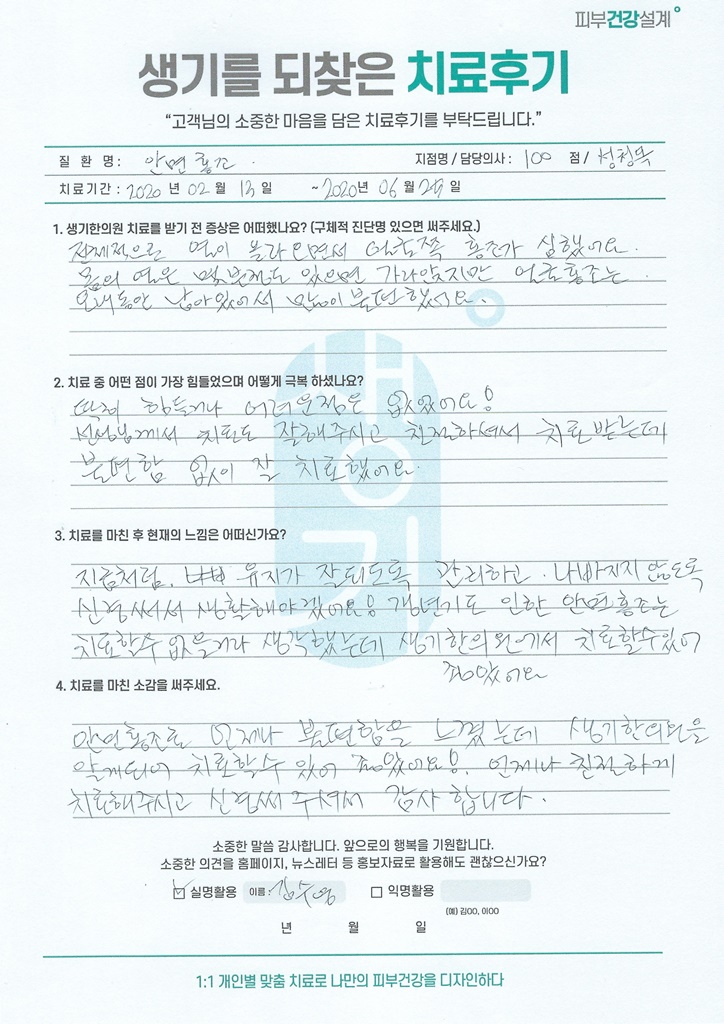 피부건강설계
생기를 되찾은 치료후기
"고객님의 소중한 마음을 담은 치료후기를 부탁드립니다."
질 환 명 : 안면 홍조 지점명 / 담당의사 : 점 /
치료기간 : 2020 년 02 월 13 일 ~2020년 06 월 일
1. 생기한의원 치료를 받기 전 증상은 어떠했나요? (구체적 진단명 있으면 써주세요.)
전체적으로 열이 올라오면서 얼굴쪽 홍조가 심했어요.
몸의 열은 몇분정도 있으면 가라앉지만 얼굴홍조는
오래동안 남아있어서 많이 불편했어요.
2. 치료 중 어떤 점이 가장 힘들었으며 어떻게 극복 하셨나요?
딱히 힘들거나 어려운점은 없었어요!
선생님께서 치료도 잘해주시고 친절하셔서 치료받는데
불편함 없이 잘 치료했어요.
3. 치료를 마친 후 현재의 느낌은 어떠신가요?
지금처럼. 유지가 잘되도록 관리하고. 나빠지지 않도록
신경써서 생활해야겠어요! 갱년기로 인한 안면홍조는
치료할수 없을거라 생각했는데 생기한의원에서 치료할수있어
좋았어요
4. 치료를 마친 소감을 써주세요.
안면홍조로 언제나 불편함을 느꼈는데 생기한의원을
알게되어 치료할수 있어 좋았어요!. 언제나 친절하게
치료해주시고 신경써 주셔서 감사 합니다.
생기
소중한 말씀 감사합니다. 앞으로의 행복을 기원합니다.
소중한 의견을 홈페이지, 뉴스레터 등 홍보자료로 활용해도 괜찮으신가요?
실명활용 이름 : 김수영 익명활용
(예) 김OO, 이OO
년 월 일
1:1 개인별 맞춤 치료로 나만의 피부건강을 디자인하다